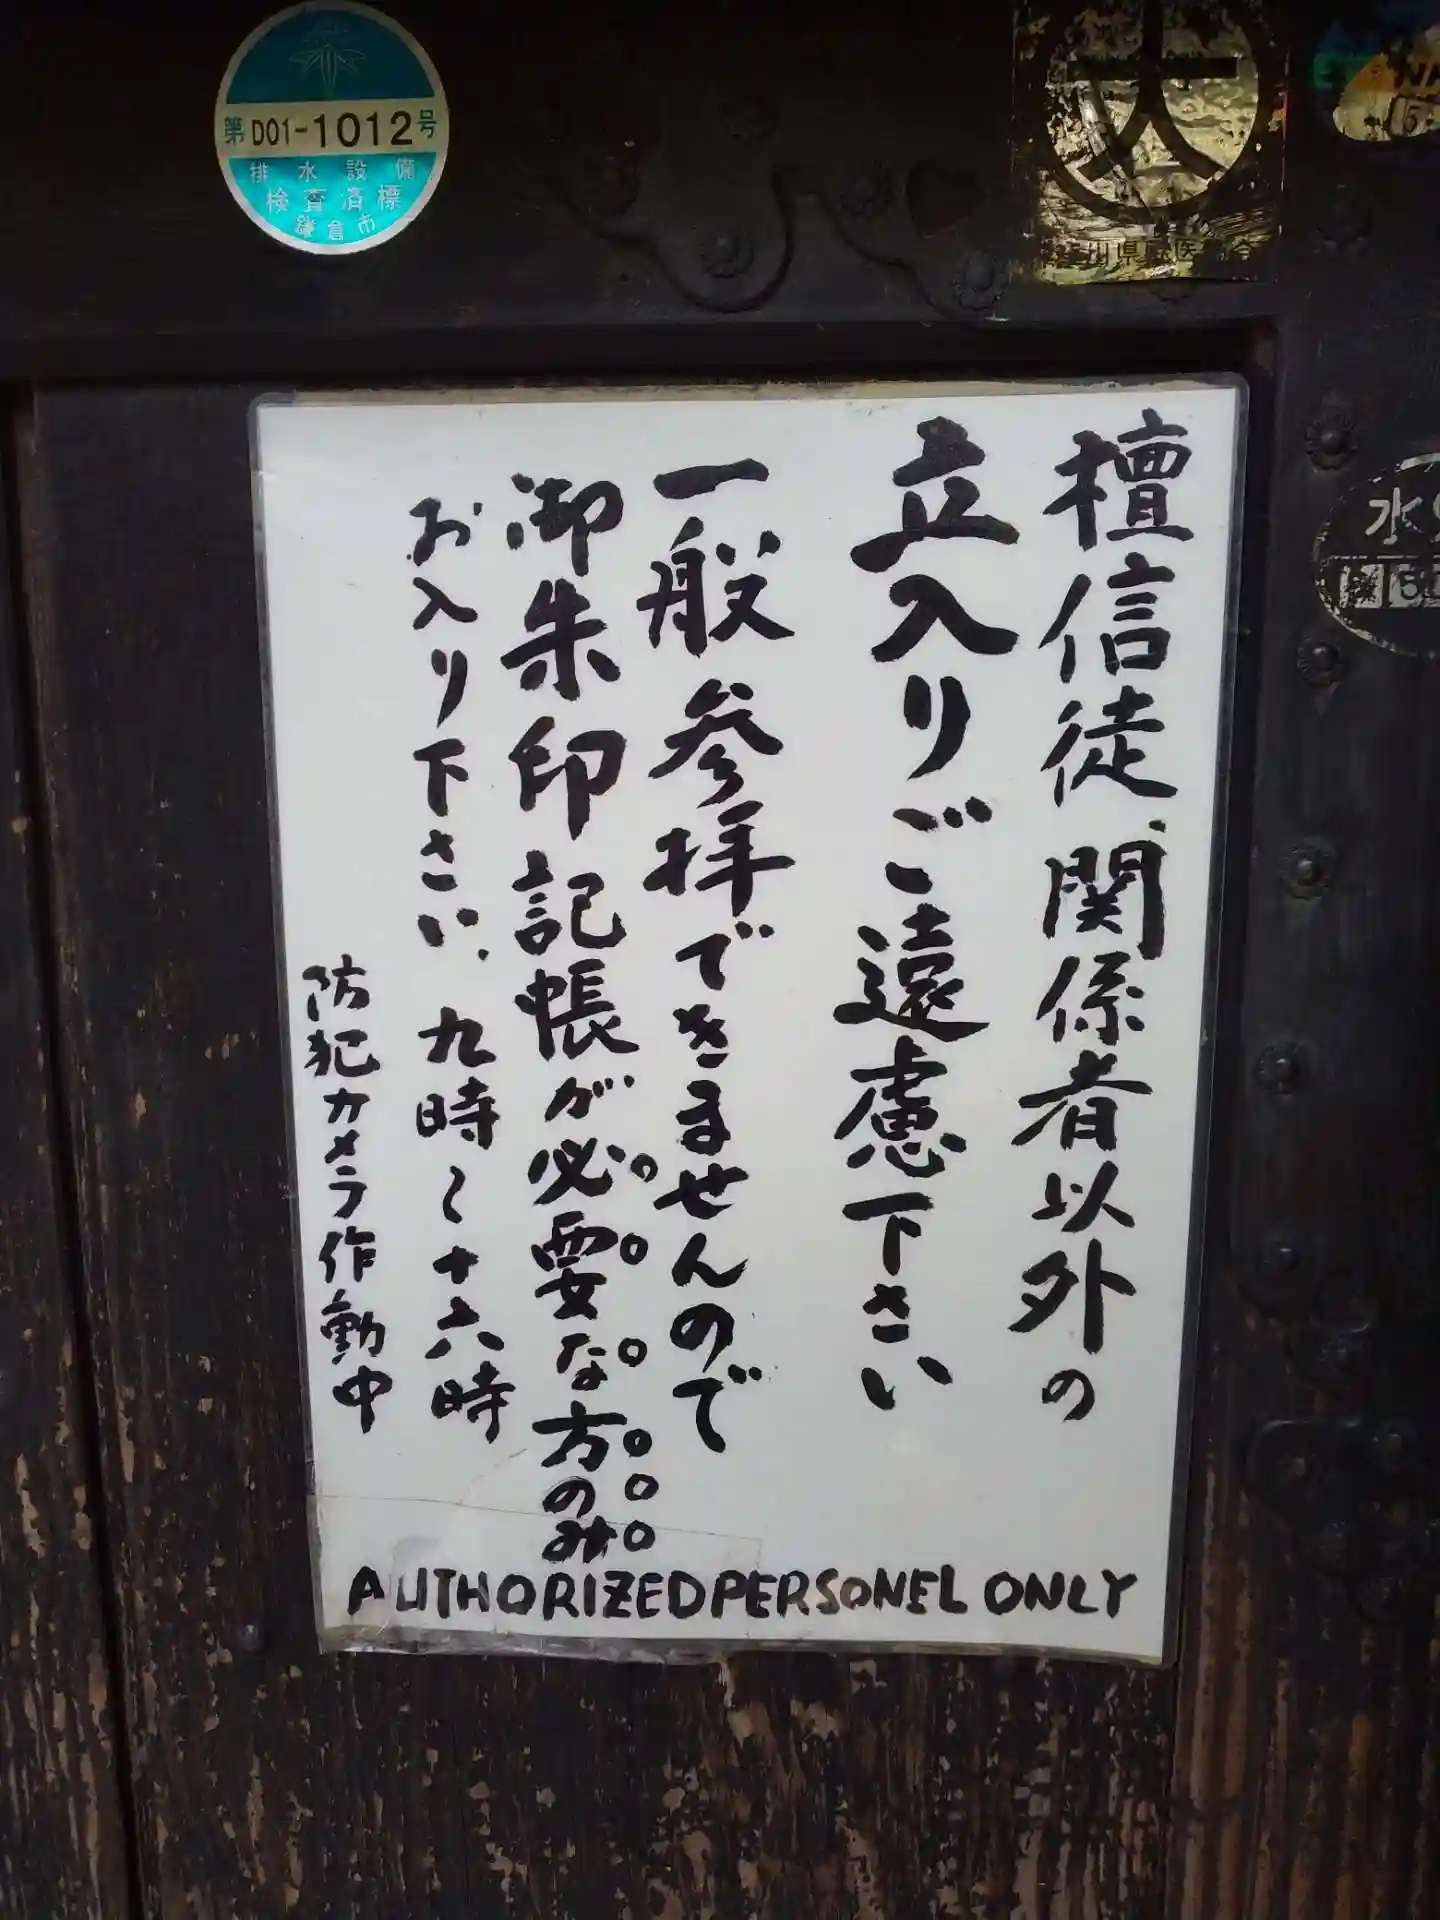 第D01-1012号
排水設備
検査済標
鎌倉市
犬
檀信徒、関係者以外の
立入りご遠慮下さい
一般参拝できませんので
御朱印記帳が必要な方のみ
お入り下さい、九時〜十六時
防犯カメラ作動中
AUTHORIZED PERSONEL ONLY